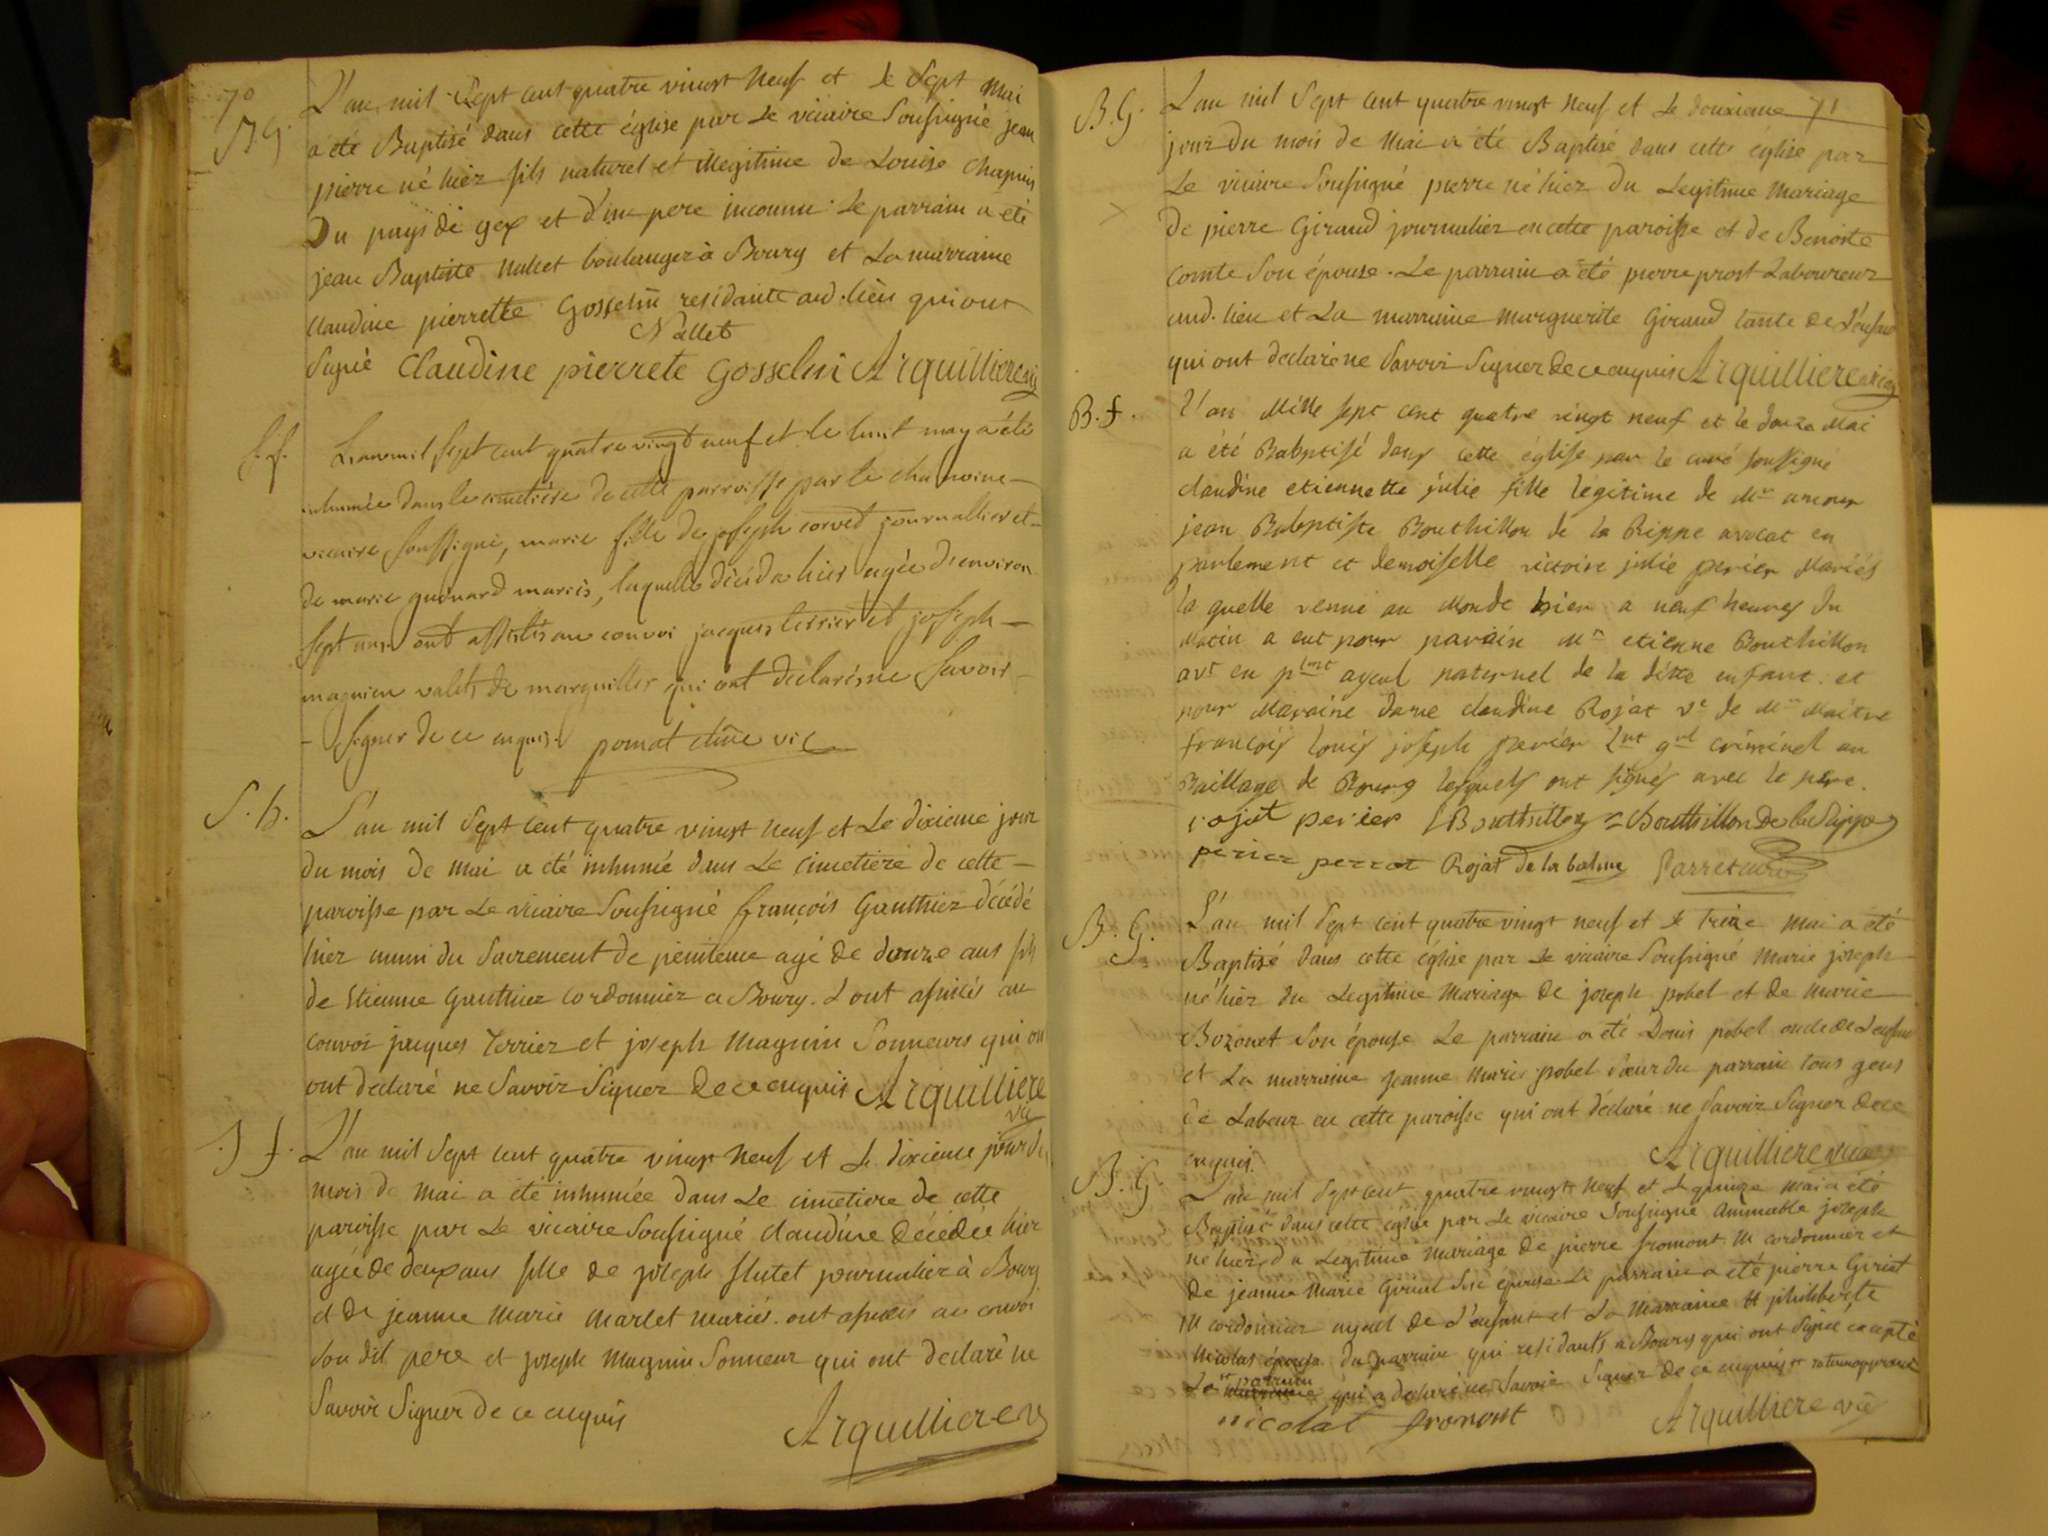 70
B.G.
L'an mil Sept cent quatre vingt neuf et le Sept Mai
a été Baptisé dans cette église par Le vicaire Soussigné jean
pierre né hier fils naturel et illegitime de Louise Chapuis
Du pays de gex et d'un pere inconnu. Le parrain a été
jean Baptiste Nallet boulanger à Bourg et La marraine
Claudine pierrette Gosselin residante aud. lieu qui ont
Nallet
Signé Claudine pierrete Gosselin Arquilliere vic
S.f.
L'an mil sept cent quatre vingt neuf et le huit may a été
inhumée dans le cimetière de cette parroisse par le chanoine
vicaire soussigné, marie fille de joseph corvet journallier et
de marie guenard mariés, laquelle décéda hier agée d'environ
sept ans ont assistés au convoi jacques terrier et joseph
magnien valets de marguillier qui ont déclarés ne savoir
signer de ce enquis. vic
S.h.
L'an mil Sept cent quatre vingt neuf et Le dixieme jour
du mois de mai a été inhumé dans Le cimetiere de cette
paroisse par Le vicaire Soussigné françois Gauthier décédé
hier muni du Sacrement de penitence agé de douze ans fils
de Etienne Gauthier cordonnier a Bourg. L ont assistés au
convoi jacques Terrier et joseph Magnin Sonneurs qui on
ont declaré ne Savoir Signer de ce enquis Arquilliere
vic
S f.
L'an mil Sept cent quatre vingt neuf et Le dixieme jour du
mois de mai a été inhumée dans Le cimetiere de cette
paroisse par Le vicaire Soussigné claudine décédée hier
agée de deux ans fille de joseph flutet journalier à Bourg
et de jeanne Marie Marlet mariés. ont assistés au convoi
son dit pere et joseph Magnin Sonneur qui ont declaré ne
Savoir Signer de ce enquis
Arquilliere v
71
B.G.
L'an mil Sept cent quatre vingt neuf et Le douxieme
jour du mois de Mai a été Baptisé dans cette église par
Le vicaire Soussigné pierre né hier du Legitime Mariage
De pierre Giraud journalier en cette paroisse et de Benoite
comte Son épouse. Le parrain a été pierre prost Laboureur
aud. lieu et La marraine Marguerite Giraud tante de L'enfant
qui ont declaré ne Savoir Signer de ce enquis Arquilliere vic
B.f.
L'an Mille sept cent quatre vingt neuf et le douze Mai
a été Babptisé dans cette église par le curé soussigné
claudine etiennette julie fille legitime de Mr
jean Babptiste Bouthillon de la Rippe avocat en
parlement et demoiselle victoire julie perier Mariés
la quelle venue au Monde hier a neuf heures du
Matin a eut pour parain Mr etienne Bouthillon
avt en plmt ayeul paternel de la ditte enfant. et
pour Maraine dame claudine Rojat ve de Mr Maitre
françois louis joseph perier lnt gnl criminel au
Baillage de Bourg lesquels ont signés avec le père.
rojat perier Bouthillon Bouthillon De la Rippe
perier perrot Rojat de la balme
B.G.
L'an mil Sept cent quatre vingt neuf et Le treize Mai a été
Baptisé dans cette église par Le vicaire Soussigné Marie joseph
né hier du Legitime Mariage de joseph pobel et de Marie
Bozonet Son épouse Le parrain a été Denis pobel oncle de L'enfant
et La marraine jeanne Marie pobel sœur du parrain tous gens
de Labeur en cette paroisse qui ont declaré ne Savoir Signer de ce
enquis.
Arquilliere vic
B.G.
L'an mil Sept cent quatre vingt neuf et Le quinze Mai a été
Baptisé dans cette église par Le vicaire Soussigné Aimmable joseph
né hier du Legitime Mariage de pierre fromont M cordonnier et
de jeanne Marie Son épouse Le parrain a été pierre
M cordonnier ayeul de L'enfant et La Marraine philiberte
Nicolas épouse du parrain qui residants a Bourg qui ont Signé excepté
Le parrain qui a declaré ne Savoir Signer de ce enquis
nicolat fromont Arquilliere vic